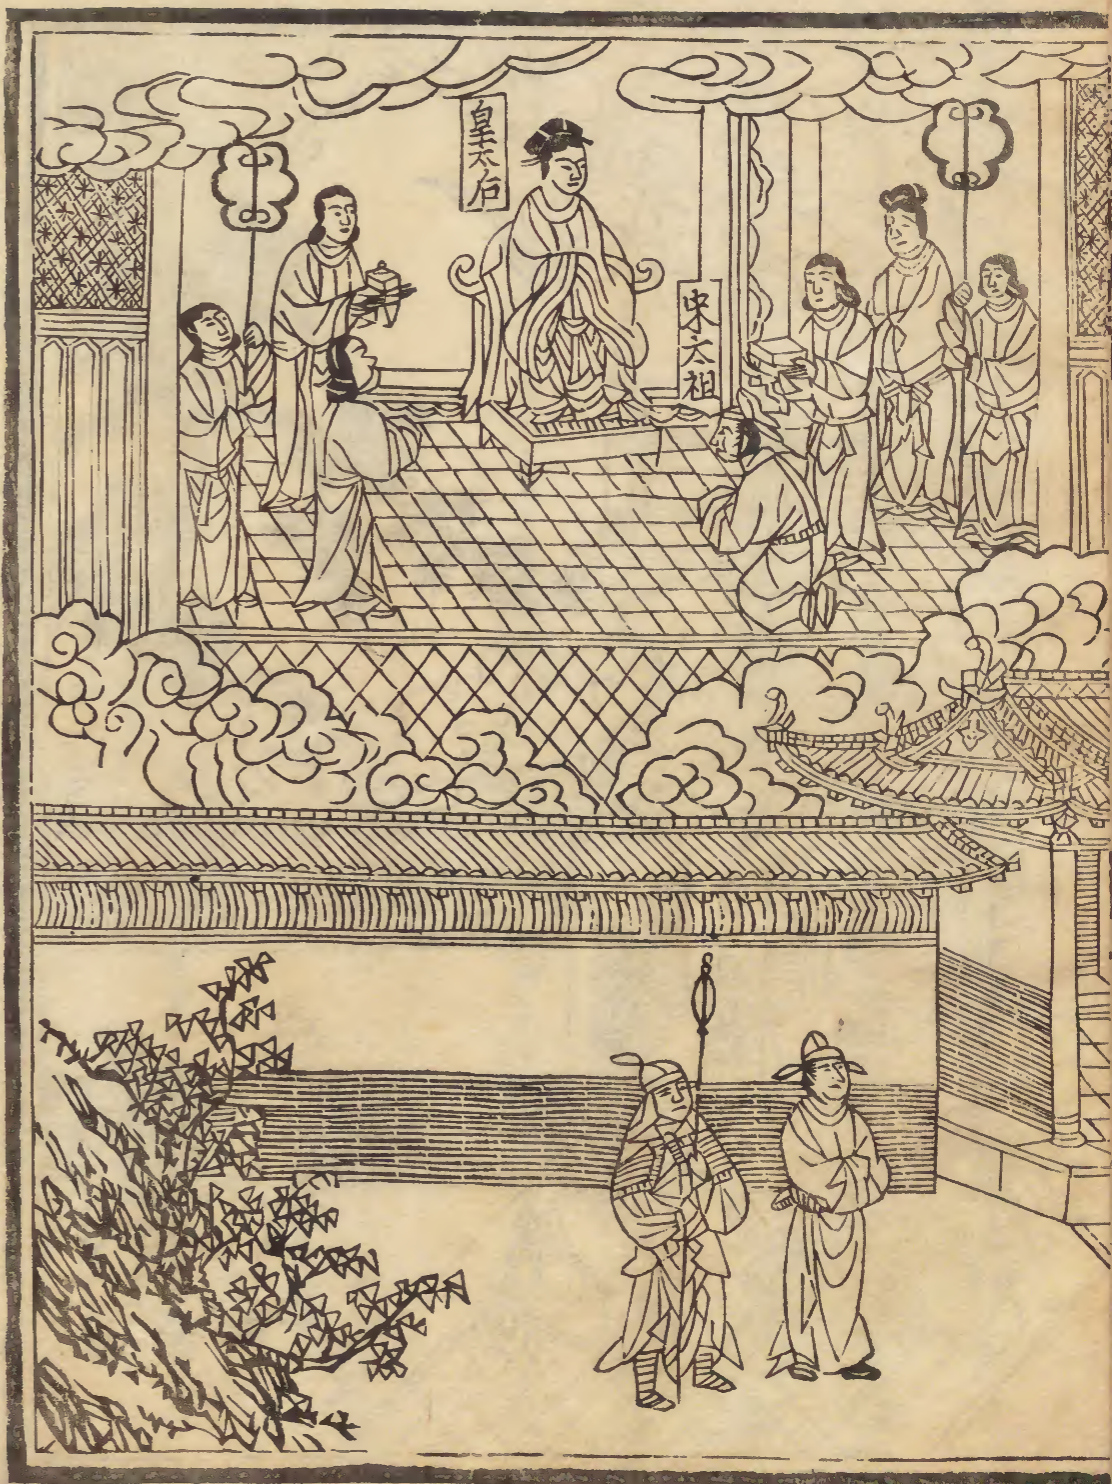 皇太后
宋太祖